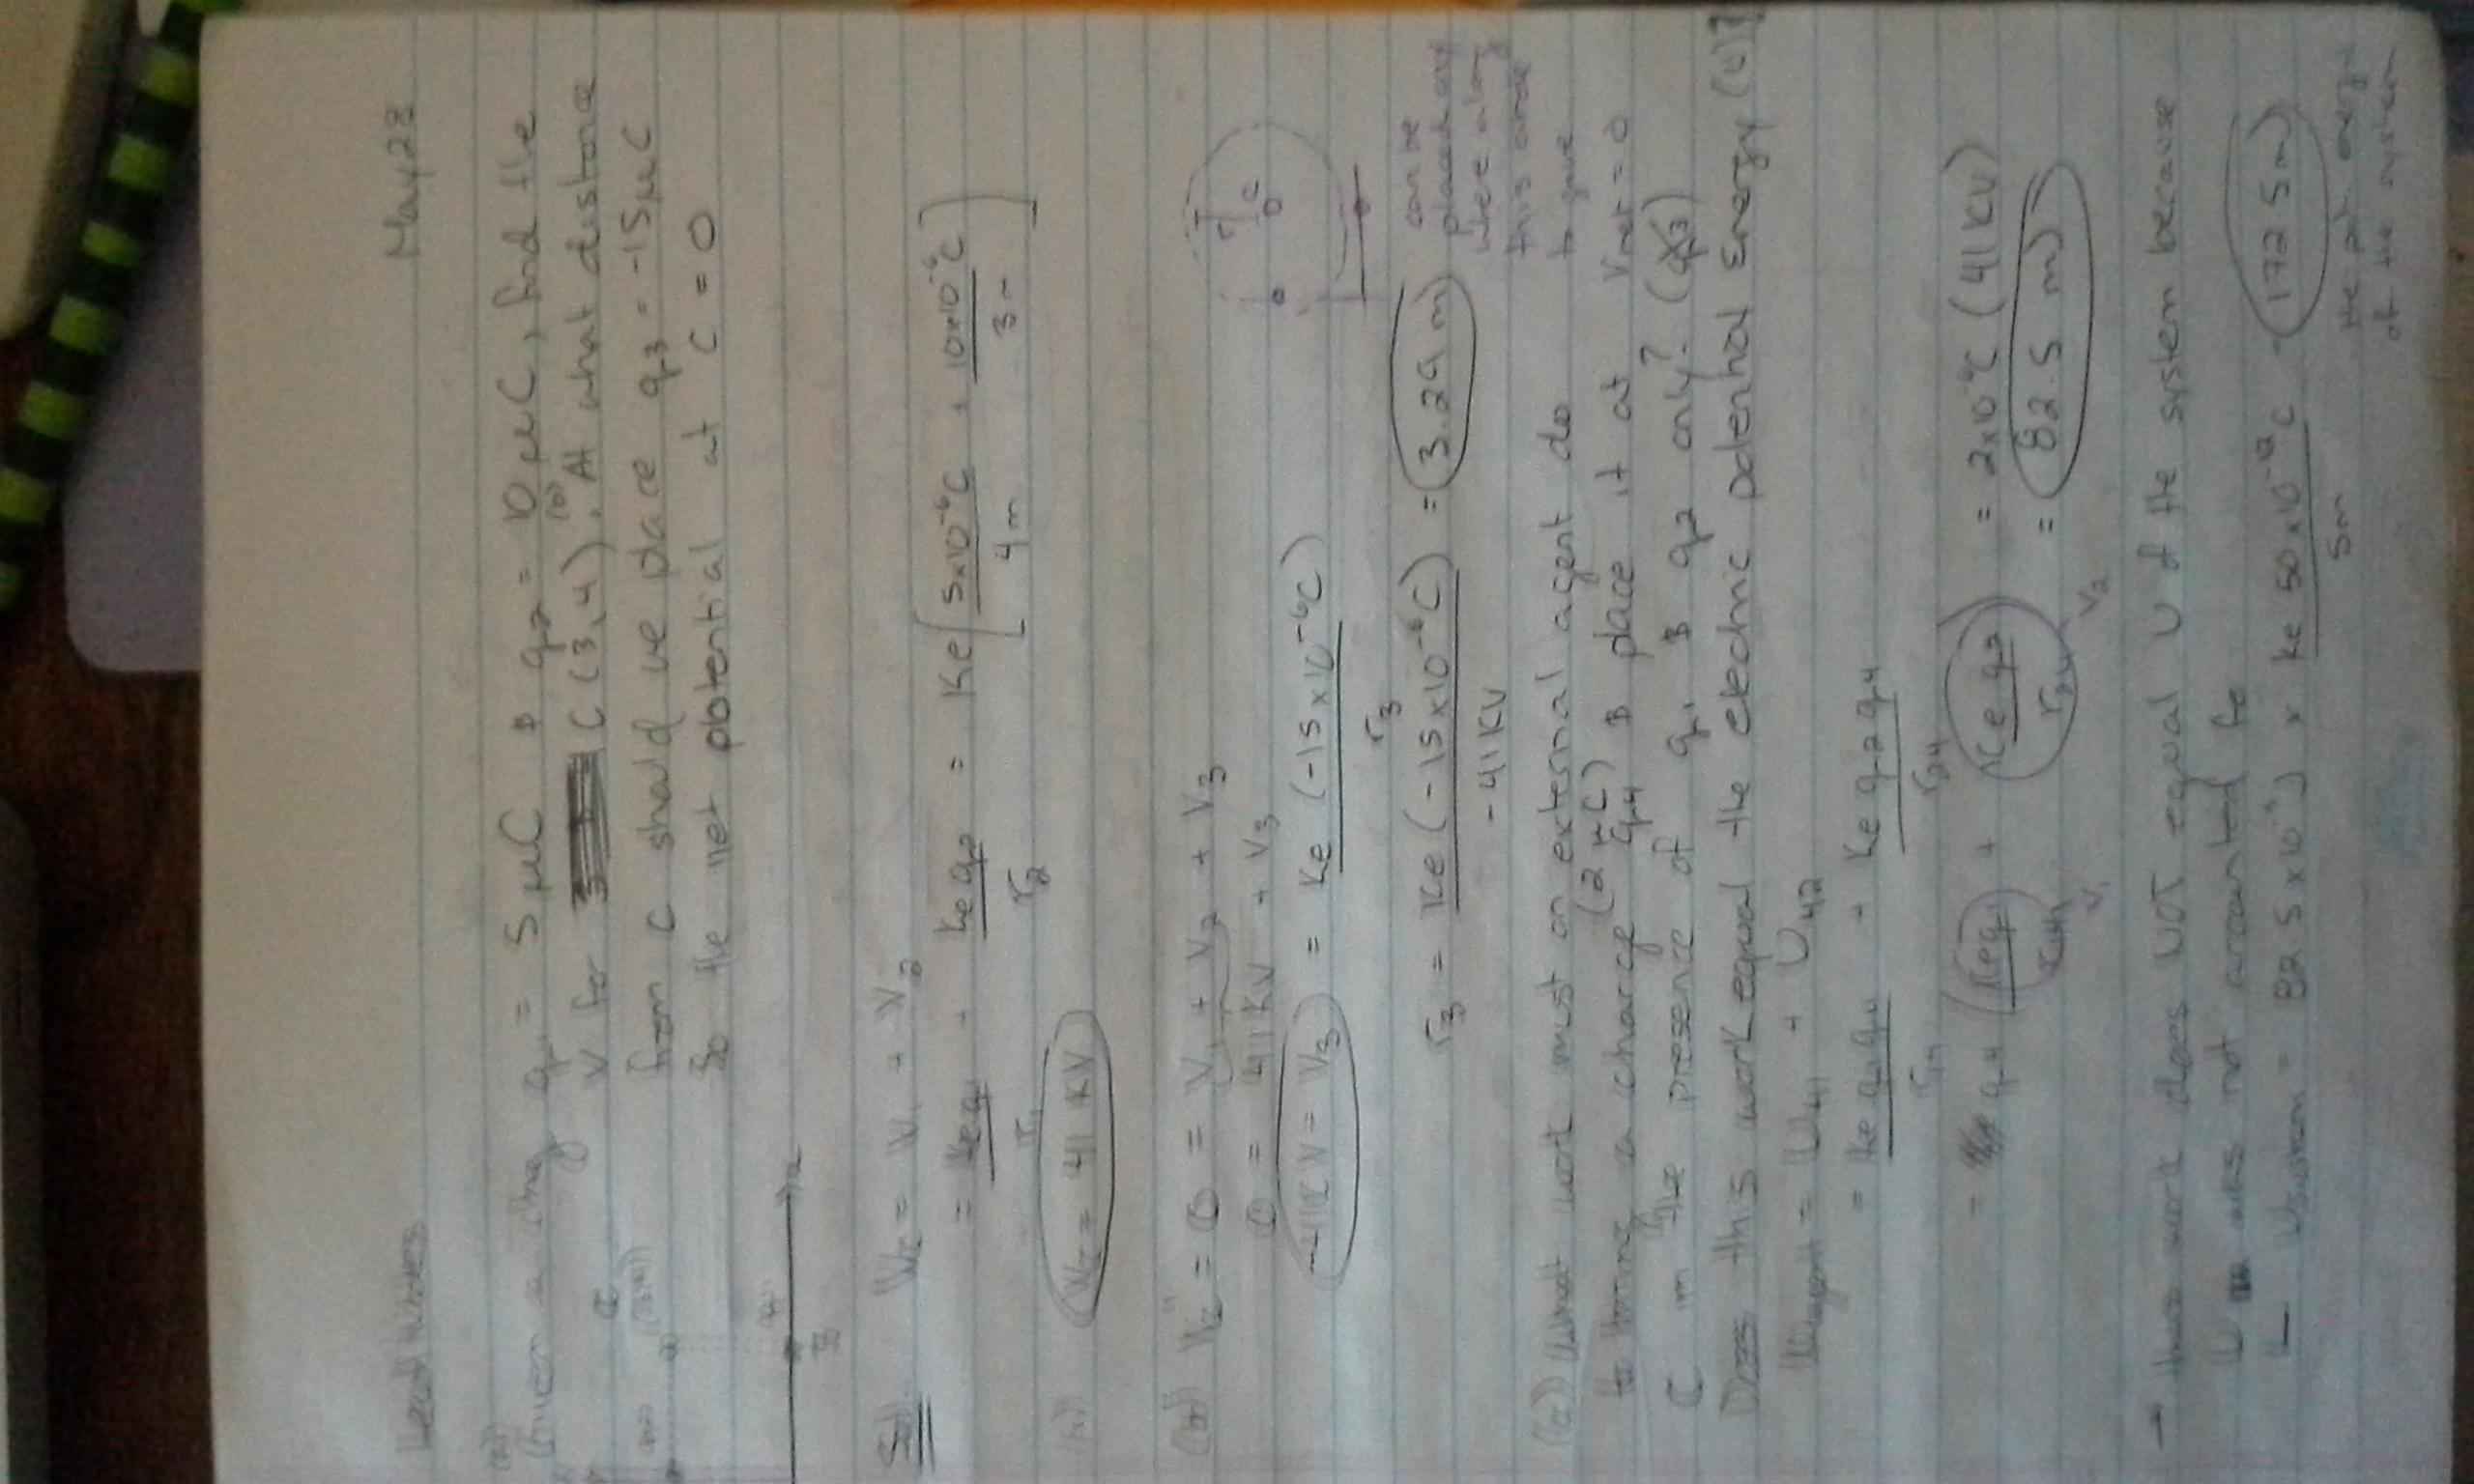 May 28
(a) Given a chg q1 = 5 μC & q2 = 10 μC, find the
V for C (3,4). (b) At what distance
from C should we place q3 = -15 μC
so the net potential at C = 0
(3,4)
4
3
x
Soln VC = V1 + V2
= keq1 / r1 + keq2 / r2 = Ke [ 5x10⁻⁶C / 4m + 10x10⁻⁶C / 3m ]
(a) VC = 41 KV
(b) VC = 0 = V1 + V2 + V3
0 = 41 KV + V3
-41KV = V3 = Ke (-15x10⁻⁶C) / r3
r3 = Ke (-15x10⁻⁶C) / -41 KV = 3.29 m
r
C
can be
placed any
where along
this circle
to give
Vnet = 0
(c) What work must an external agent do
to bring a charge q4 (2 μC) & place it at
C in the presence of q1 & q2 only? (q3)
Does this work equal the electric potential Energy (U)?
Wagent = U41 + U42
= ke q1q4 / r14 + Ke q2q4 / r24
= q4 (keq1 / r14 + Ke q2 / r24) = 2x10⁻⁶C (41 KV)
V1 V2
= 82.5 mJ
→ this work does NOT equal U of the system because
U12 was not accounted for
Usystem = 82.5x10⁻³J + ke 50x10⁻¹²C / 5m = 172.5mJ
the pot energy
of the system